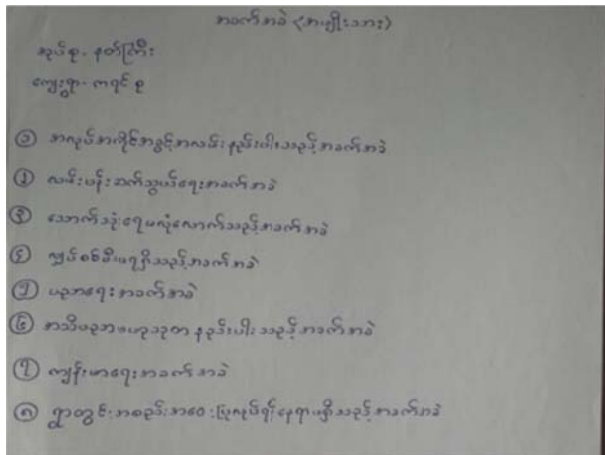 အခက်အခဲ (အမျိုးသား)
အုပ်စု- နတ်ကြီး
ကျေးရွာ- ကရင်စု
၁ အလုပ်အကိုင်အခွင့်အလမ်းနည်းပါးသည့်အခက်အခဲ
၂ လမ်းပန်းဆက်သွယ်ရေးအခက်အခဲ
၃ သောက်သုံးရေမလုံလောက်သည့်အခက်အခဲ
၄ လျှပ်စစ်မီးမရရှိသည့်အခက်အခဲ
၅ ပညာရေးအခက်အခဲ
၆ အသိပညာဗဟုသုတ နည်းပါးသည့်အခက်အခဲ
၇ ကျန်းမာရေးအခက်အခဲ
၈ ရွာတွင်းအစည်းအဝေးပြုလုပ်ရန်နေရာမရှိသည့်အခက်အခဲ